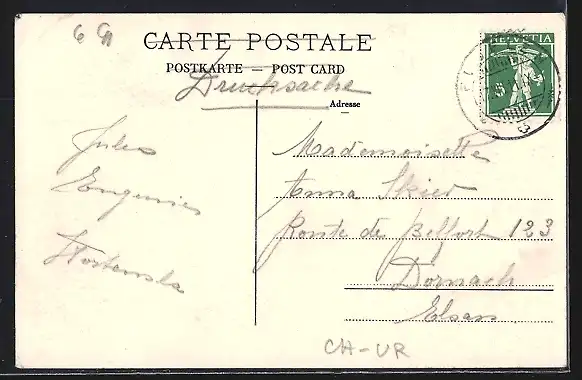 CARTE POSTALE
POSTKARTE — POST CARD
Drucksache
Adresse
HELVETIA
5
Jules
Eugenies
Mademoiselle
Anna Skier
Route de Belfort 123
Dornach
Elsass
CH-UR